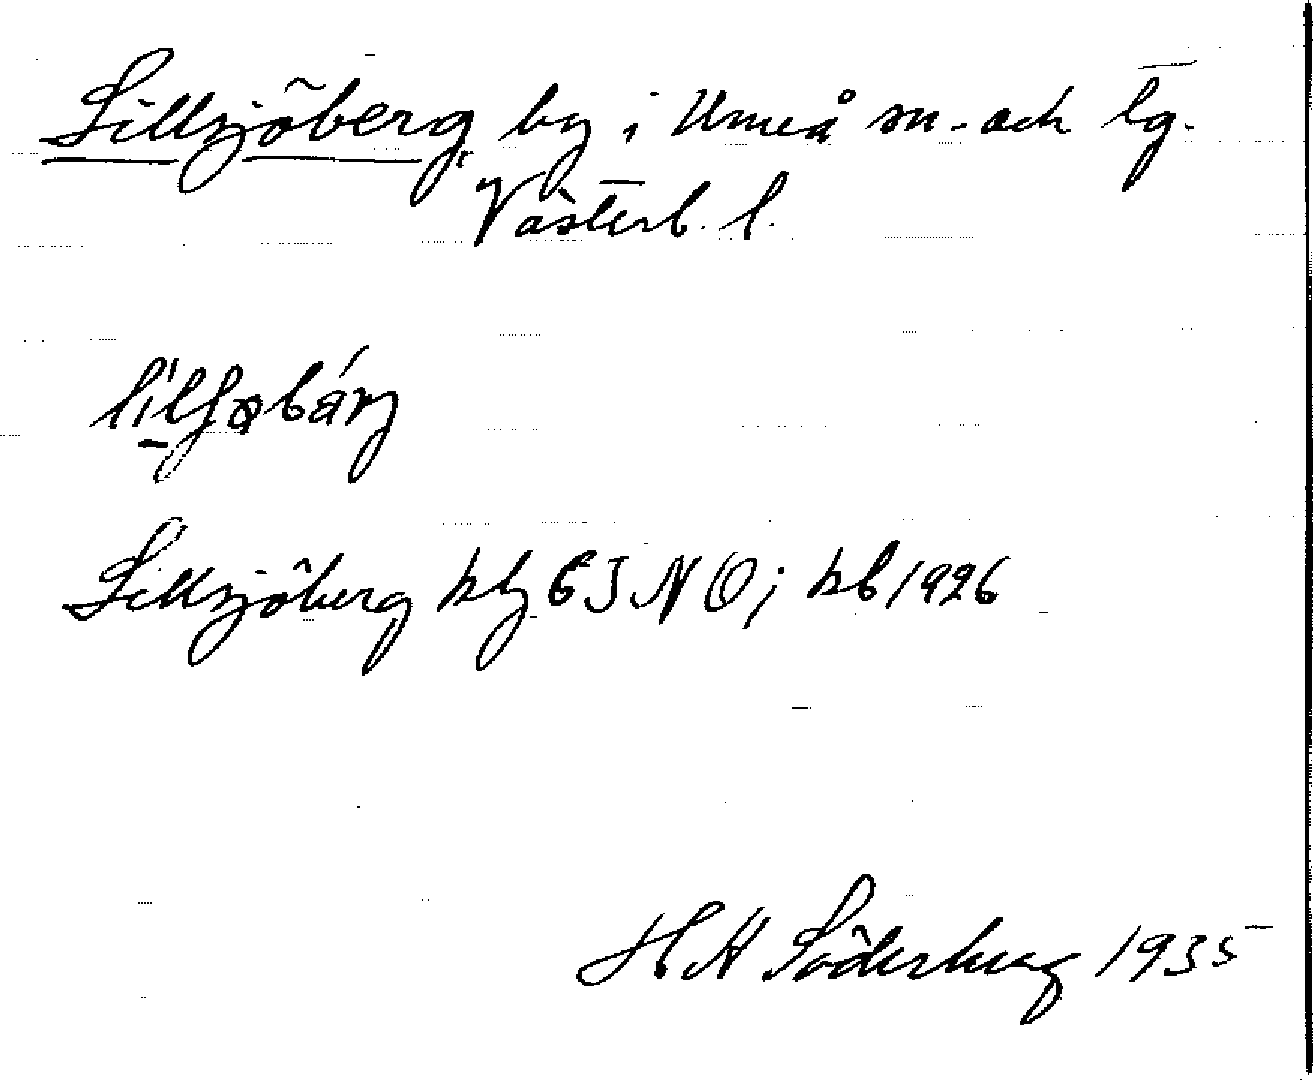 Lillsjöberg, by i Umeå sn. och lg.
Västerb. l.
Lillsjöberg kbl 63 NO; kb 1926
HH Söderberg 1935